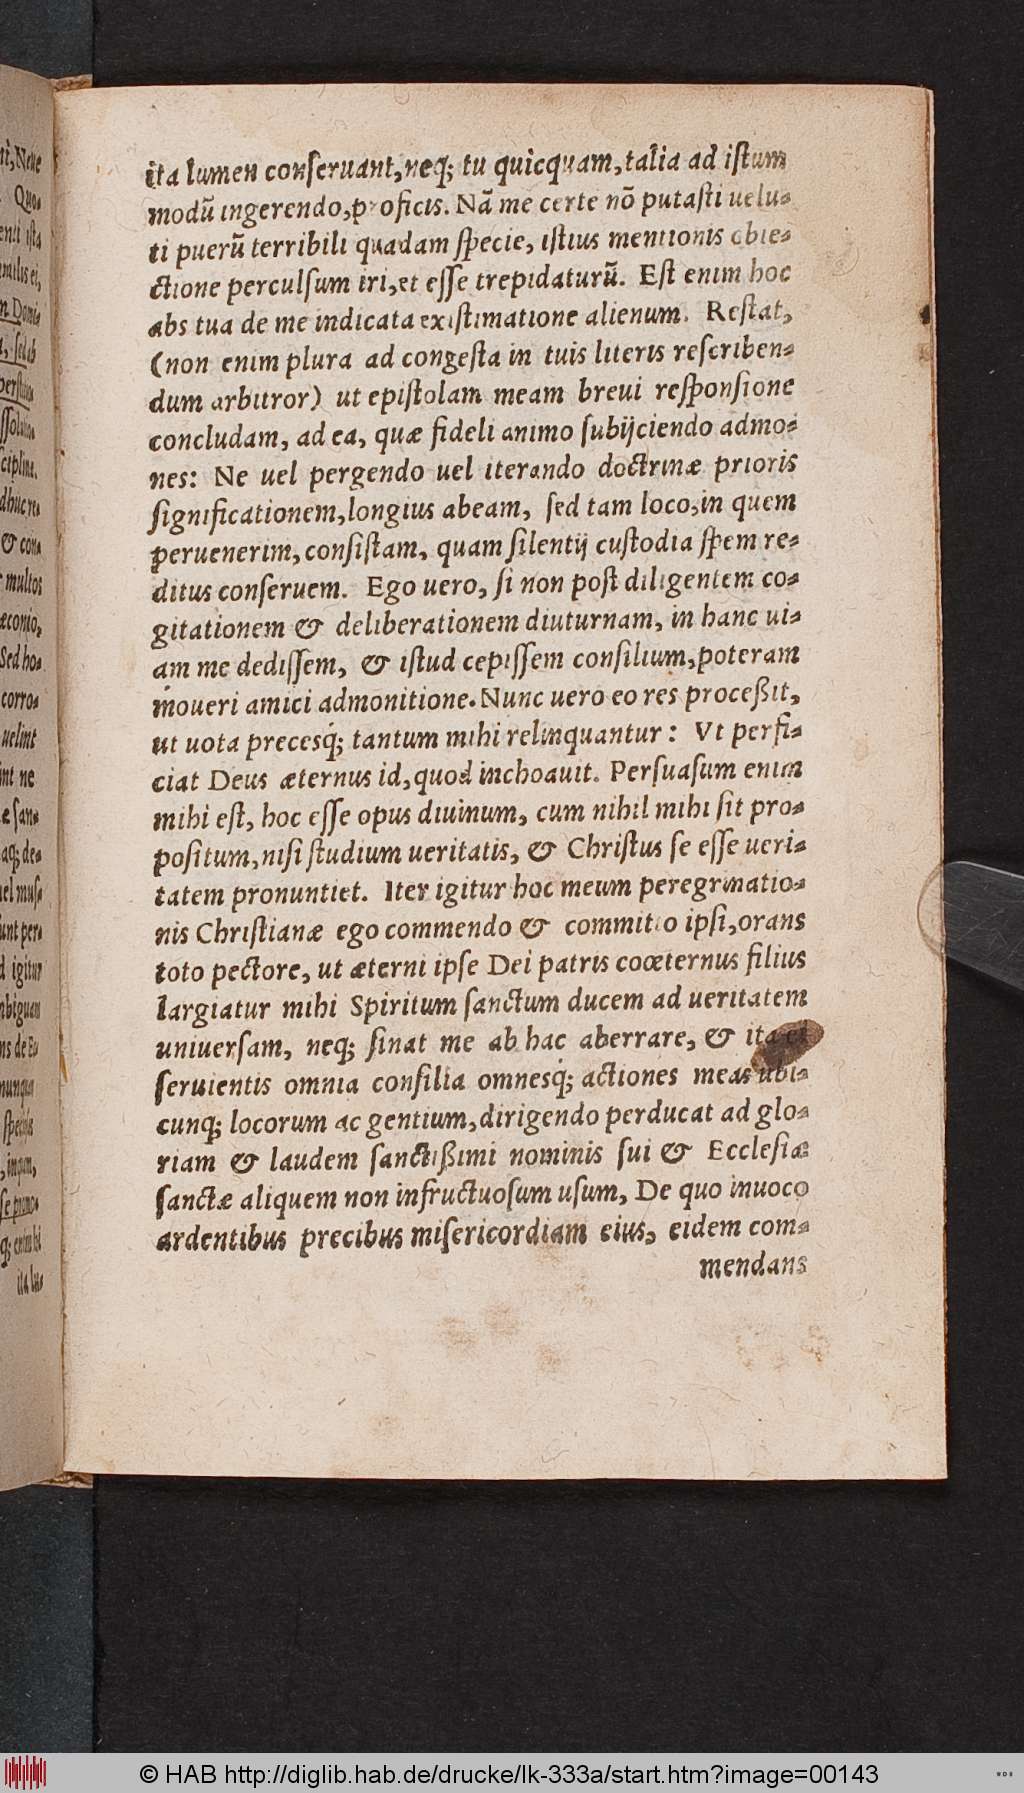 ita lumen conſeruant, neq; tu quicquam, talia ad iſtum
modū ingerendo, proficis. Nā me certe nō putaſti uelu-
ti puerū terribili quadam ſpecie, iſtius mentionis obie-
ctione perculſum iri, et eſſe trepidaturū. Eſt enim hoc
abs tua de me indicata exiſtimatione alienum. Reſtat,
(non enim plura ad congeſta in tuis literis reſcriben-
dum arbitror) ut epiſtolam meam breui reſponſione
concludam, ad ea, quæ fideli animo ſubijciendo admo-
nes: Ne uel pergendo uel iterando doctrinæ prioris
ſignificationem, longius abeam, ſed tam loco, in quem
peruenerim, conſiſtam, quam ſilentij cuſtodia ſpem re-
ditus conſeruem. Ego uero, ſi non poſt diligentem co-
gitationem & deliberationem diuturnam, in hanc ui-
am me dediſſem, & iſtud cepiſſem conſilium, poteram
moueri amici admonitione. Nunc uero eo res proceßit,
ut uota precesq́; tantum mihi relinquantur: Vt perfi-
ciat Deus æternus id, quod inchoauit. Perſuaſum enim
mihi eſt, hoc eſſe opus diuinum, cum nihil mihi ſit pro-
poſitum, niſi ſtudium ueritatis, & Chriſtus ſe eſſe ueri-
tatem pronuntiet. Iter igitur hoc meum peregrinatio-
nis Chriſtianæ ego commendo & committo ipſi, orans
toto pectore, ut æterni ipſe Dei patris coæternus filius
largiatur mihi Spiritum ſanctum ducem ad ueritatem
uniuerſam, neq; ſinat me ab hac aberrare, & ita ei
ſeruientis omnia conſilia omnesq́; actiones meas ubi-
cunq; locorum ac gentium, dirigendo perducat ad glo-
riam & laudem ſanctißimi nominis ſui & Eccleſiæ
ſanctæ aliquem non infructuoſum uſum, De quo inuoco
ardentibus precibus miſericordiam eius, eidem com-
mendans
© HAB http://diglib.hab.de/drucke/lk-333a/start.htm?image=00143